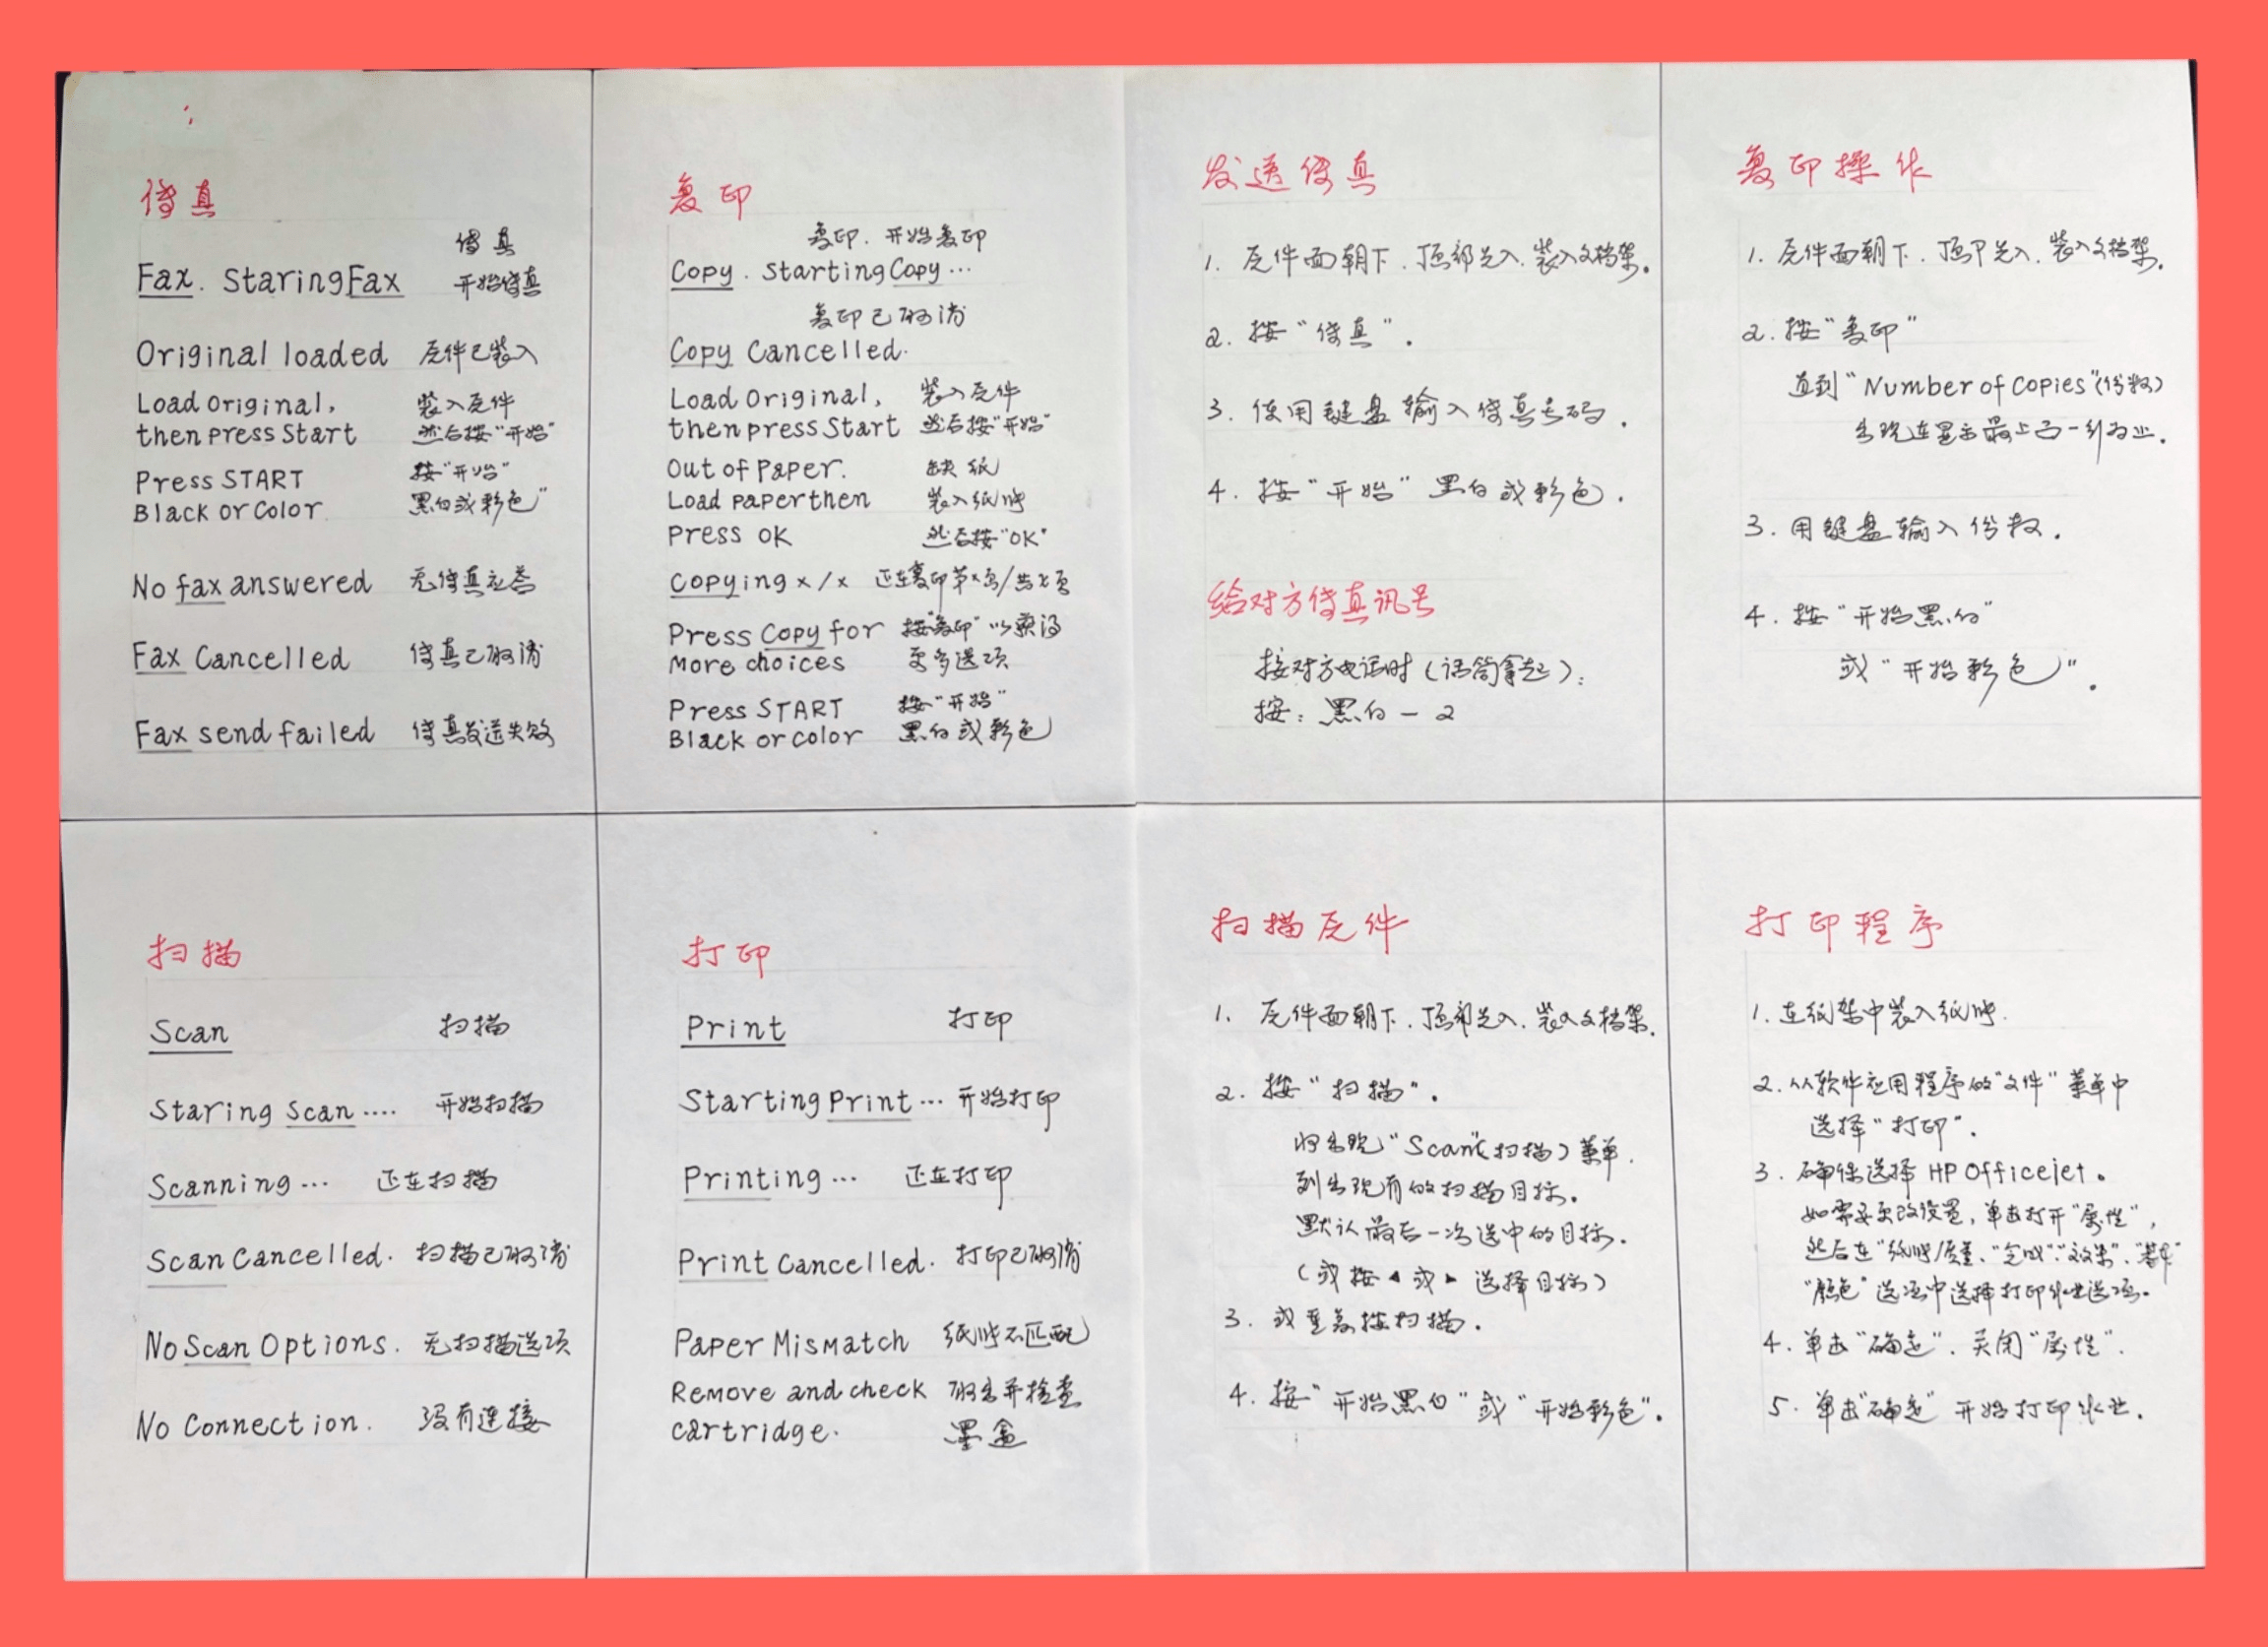 传真
传真
Fax. Staring Fax 开始传真
Original loaded 原件已装入
Load original, 装入原件
then press Start 然后按“开始”
Press START 按“开始”
Black or Color 黑白或彩色”
No fax answered 无传真应答
Fax Cancelled 传真已取消
Fax send failed 传真发送失败
复印
复印. 开始复印
Copy. Starting Copy...
复印已取消
Copy Cancelled.
Load Original, 装入原件
then press Start 然后按“开始”
Out of Paper. 缺纸
Load paper then 装入纸张
Press OK 然后按“OK”
Copying x/x 正在复印第x页/共x页
Press Copy for 按“复印”以获得
More choices 更多选项
Press START 按“开始”
Black or color 黑白或彩色
发送传真
1. 原件面朝下.顶部先入.装入文档架.
2. 按“传真”.
3. 使用键盘输入传真号码.
4. 按“开始”黑白或彩色.
给对方传真讯号
接对方电话时(话筒拿起):
按: 黑白-2
复印操作
1. 原件面朝下.顶P先入.装入文档架.
2. 按“复印”
直到“Number of Copies”(份数)
出现在显示最上面一行为止.
3. 用键盘输入份数.
4. 按“开始黑白”
或“开始彩色”.
扫描
Scan 扫描
Staring Scan.... 开始扫描
Scanning... 正在扫描
Scan Cancelled. 扫描已取消
No Scan Options. 无扫描选项
No Connection. 没有连接
打印
Print 打印
Starting Print... 开始打印
Printing... 正在打印
Print Cancelled. 打印已取消
Paper Mismatch 纸张不匹配
Remove and check 取出并检查
cartridge. 墨盒
扫描原件
1. 原件面朝下.顶部先入.装入文档架.
2. 按“扫描”.
将出现“Scan”(扫描)菜单.
列出现有的扫描目标.
默认最后一次选中的目标.
(或按◄或►选择目标)
3. 或重复按扫描.
4. 按“开始黑白”或“开始彩色”.
打印程序
1. 在纸架中装入纸张.
2. 从软件应用程序的“文件”菜单中
选择“打印”.
3. 确保选择 HP Officejet.
如需要更改设置,单击打开“属性”,
然后在“纸张/质量”、“完成”“效果”、“基本”
“颜色”选项中选择打印作业选项.
4. 单击“确定”.关闭“属性”.
5. 单击“确定”开始打印作业.